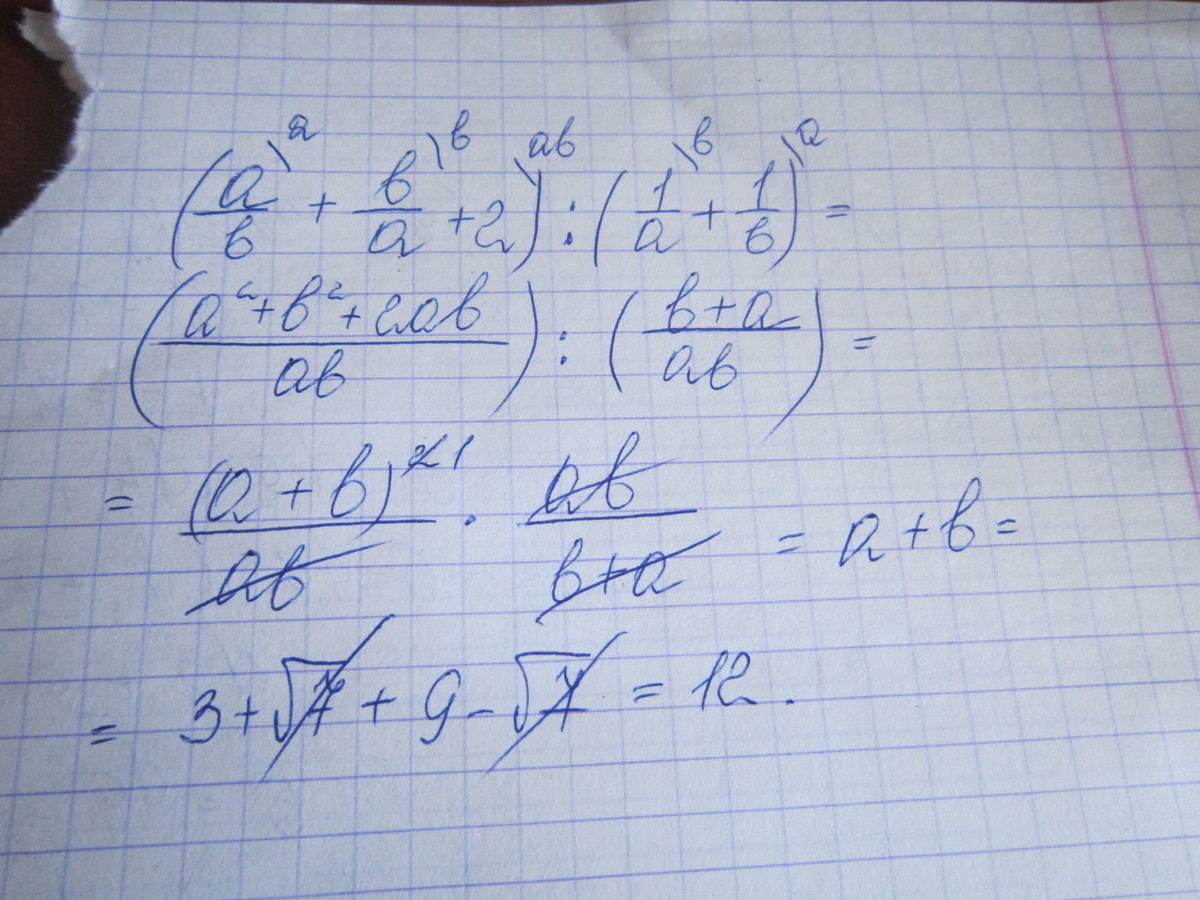 (a/b\ᵃ + b/a\ᵇ + 2\ᵃᵇ) : (1/a\ᵇ + 1/b\ᵃ) =
((a² + b² + 2ab)/ab) : ((b + a)/ab) =
= (a + b)²¹/ab · ab/(b + a) = a + b =
= 3 + √7 + 9 - √7 = 12.